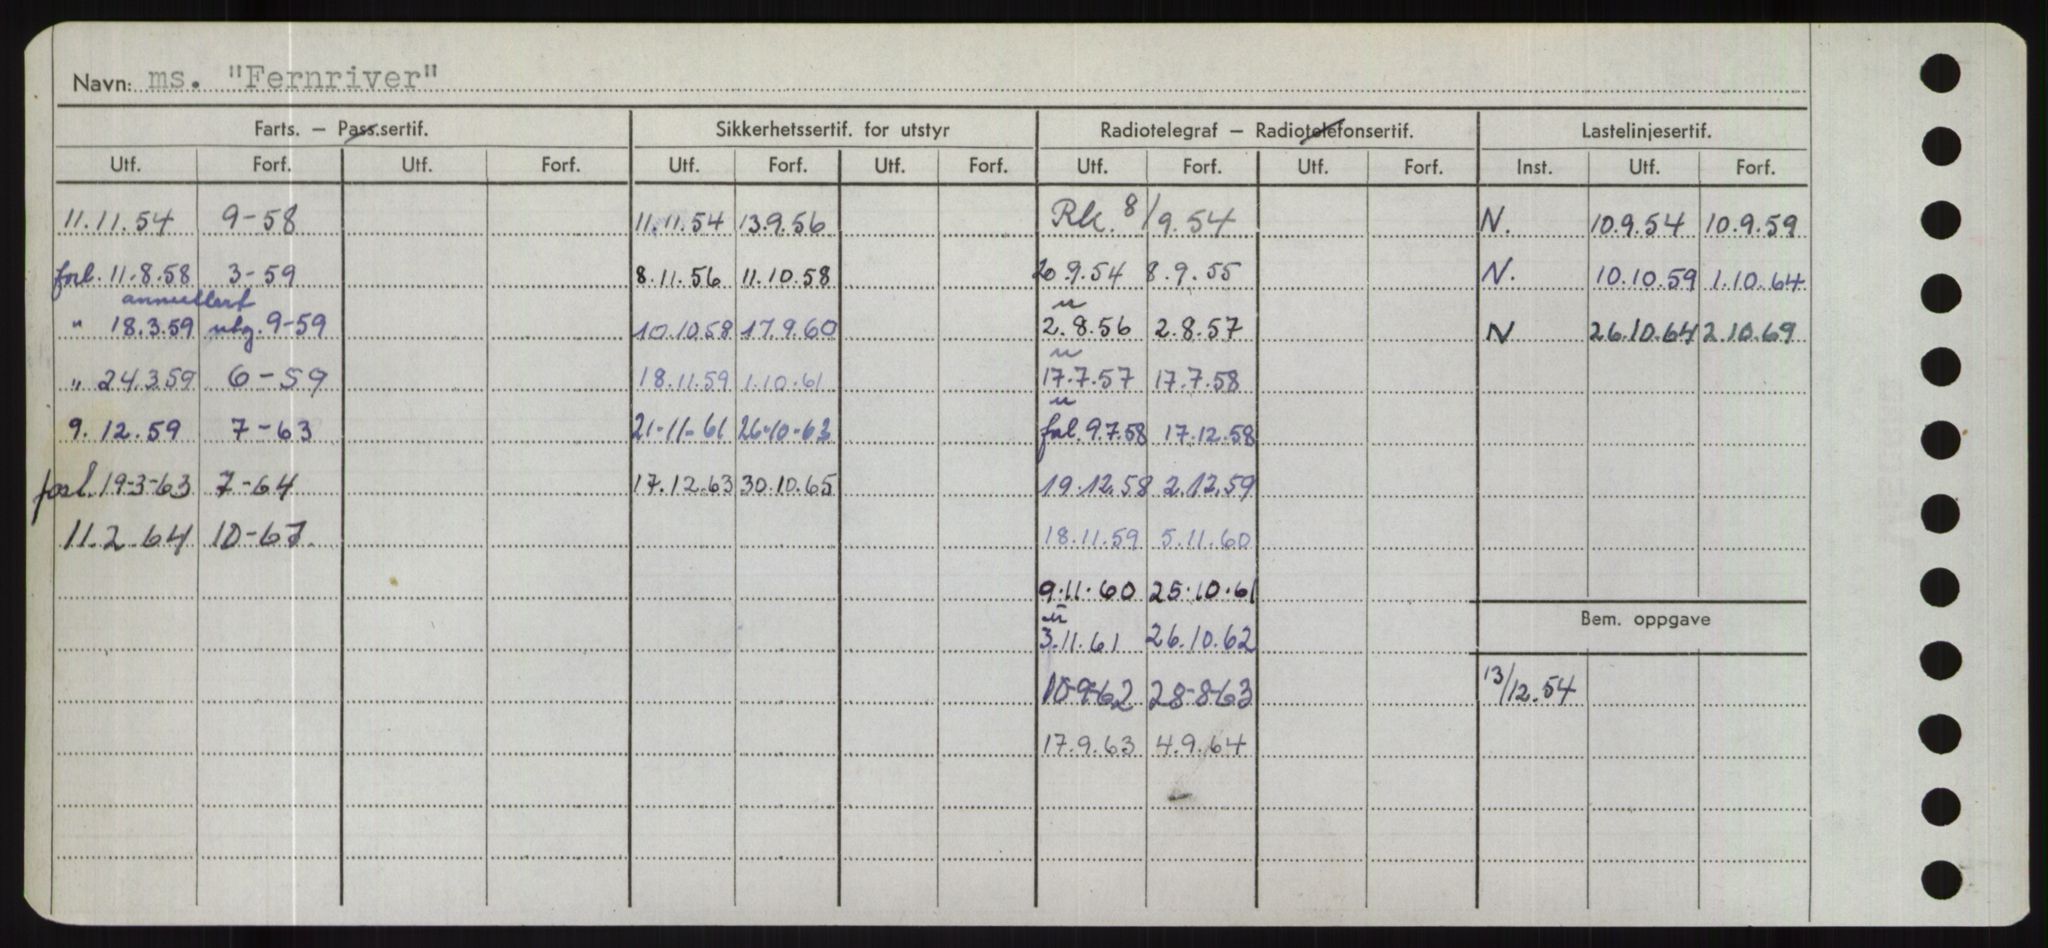 Navn: ms. "Fernriver"
Farts. — Pass.sertif. Sikkerhetssertif. for utstyr Radiotelegraf — Radiotelefonsertif. Lastelinjesertif.
Utf. Forf. Utf. Forf. Utf. Forf. Utf. Forf. Utf. Forf. Utf. Forf. Inst. Utf. Forf.
11.11.54 9-58 11.11.54 13.9.56 Rk. 8/9.54 N. 10.9.54 10.9.59
forl. 11.8.58 3-59 8.11.56 11.10.58 20.9.54 8.9.55 N. 10.10.59 1.10.64
annullert u
" 18.3.59 utg. 9-59 10.10.58 17.9.60 2.8.56 2.8.57 N 26.10.64 2.10.69
u
" 24.3.59 6-59 18.11.59 1.10.61 17.7.57 17.7.58
u
9.12.59 7-63 21-11-61 26-10-63 fol. 9.7.58 17.12.58
forl. 19-3-63 7-64 17.12.63 30.10.65 19.12.58 2.12.59
11.2.64 10-67 18.11.59 5.11.60
9.11.60 25.10.61
u Bem. oppgave
3.11.61 26.10.62
10-9-62 28-8-63 13/12.54
17.9.63 4.9.64